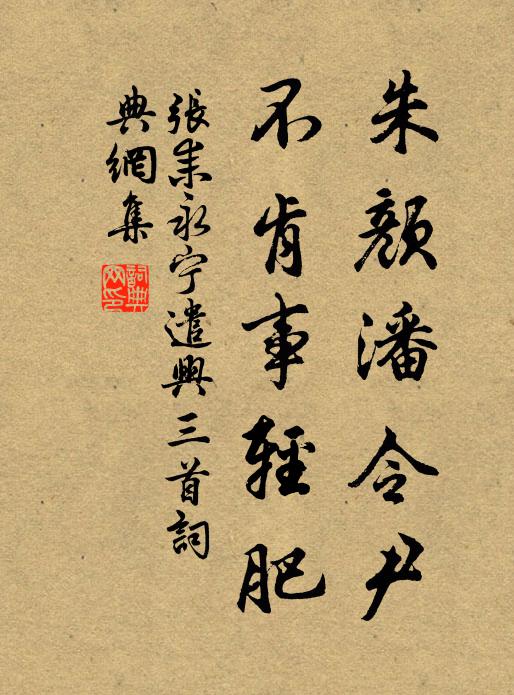 朱顏潘令尹
不肯事輕肥
張耒永寧遣興三首詞
典網集
詞典網印